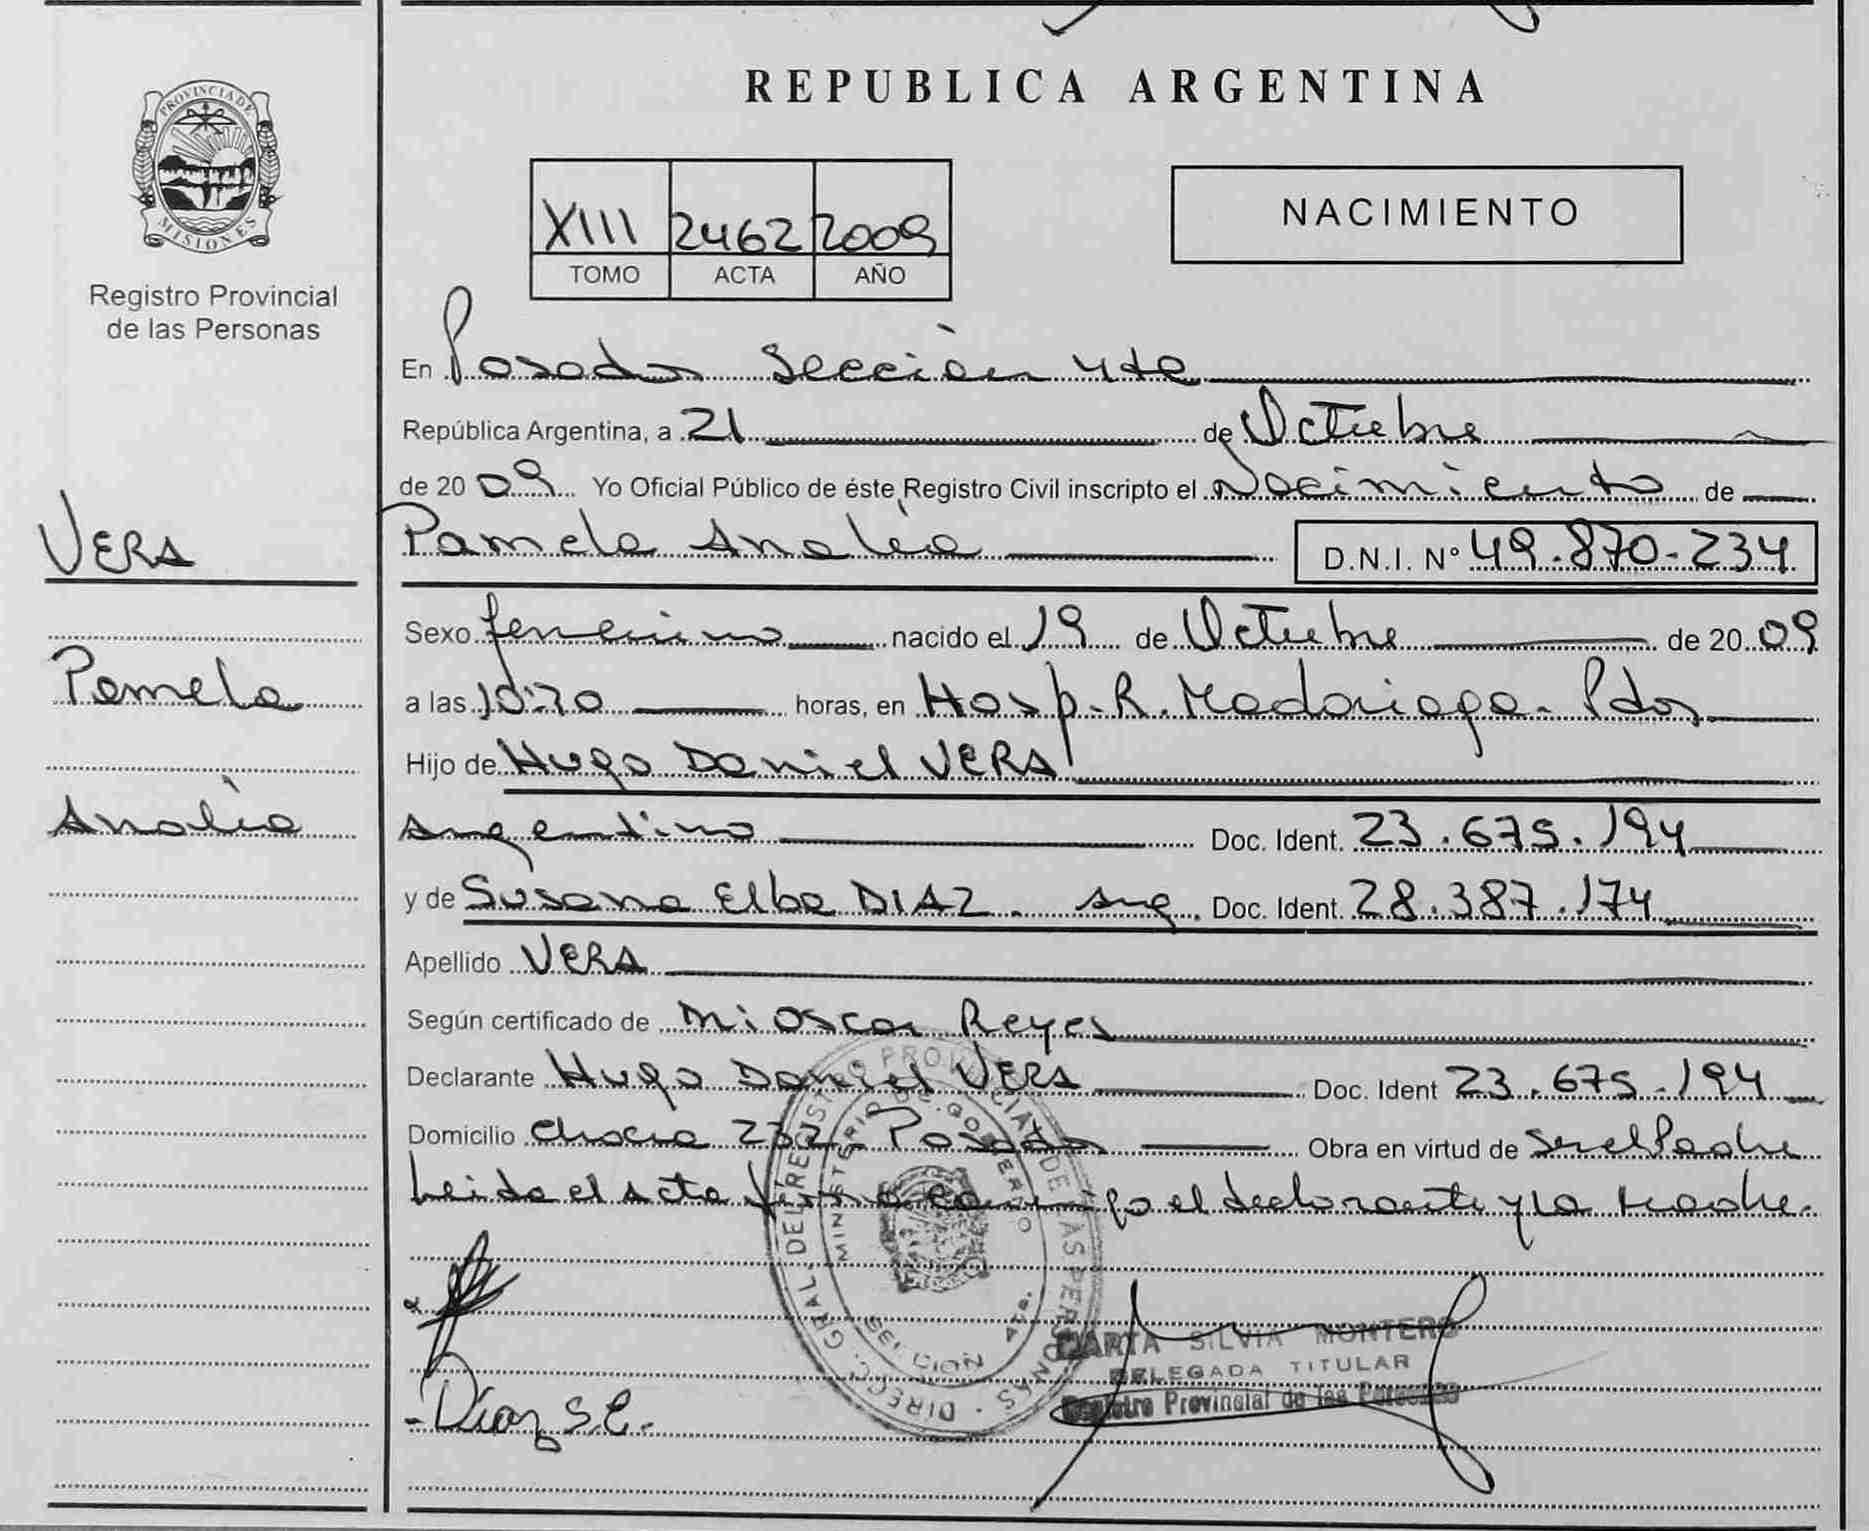 REPUBLICA ARGENTINA
PROVINCIA DE MISIONES
Registro Provincial
de las Personas
XIII 2462 2009
TOMO ACTA AÑO
NACIMIENTO
En Posadas Sección 4ta
República Argentina, a 21 de Octubre
de 20 09 Yo Oficial Público de éste Registro Civil inscripto el Nacimiento de
VERA
Pamela Analía D.N.I. N° 49.870.234
Sexo femenino nacido el 19 de Octubre de 20 09
Pamela
a las horas, en Hosp. R. Madariaga - Pdas
Hijo de Hugo Daniel VERA
Analía
Argentino Doc. Ident. 23.675.194
y de Susana Elba DIAZ. Arg. Doc. Ident. 28.387.174
Apellido VERA
Según certificado de Oscar Reyes
Declarante Hugo Daniel VERA Doc. Ident 23.675.194
Domicilio 232 - Posadas Obra en virtud de ser el Padre
Leida el acta firma conmigo el declarante y la Madre.
DIRECC. GRAL. DEL REGISTRO PROVINCIAL DE LAS PERSONAS
MINISTERIO DE GOBIERNO
SECCION 4ta.
MARTA SILVIA MONTERO
DELEGADA TITULAR
Registro Provincial de las Personas
- Díaz S.E.